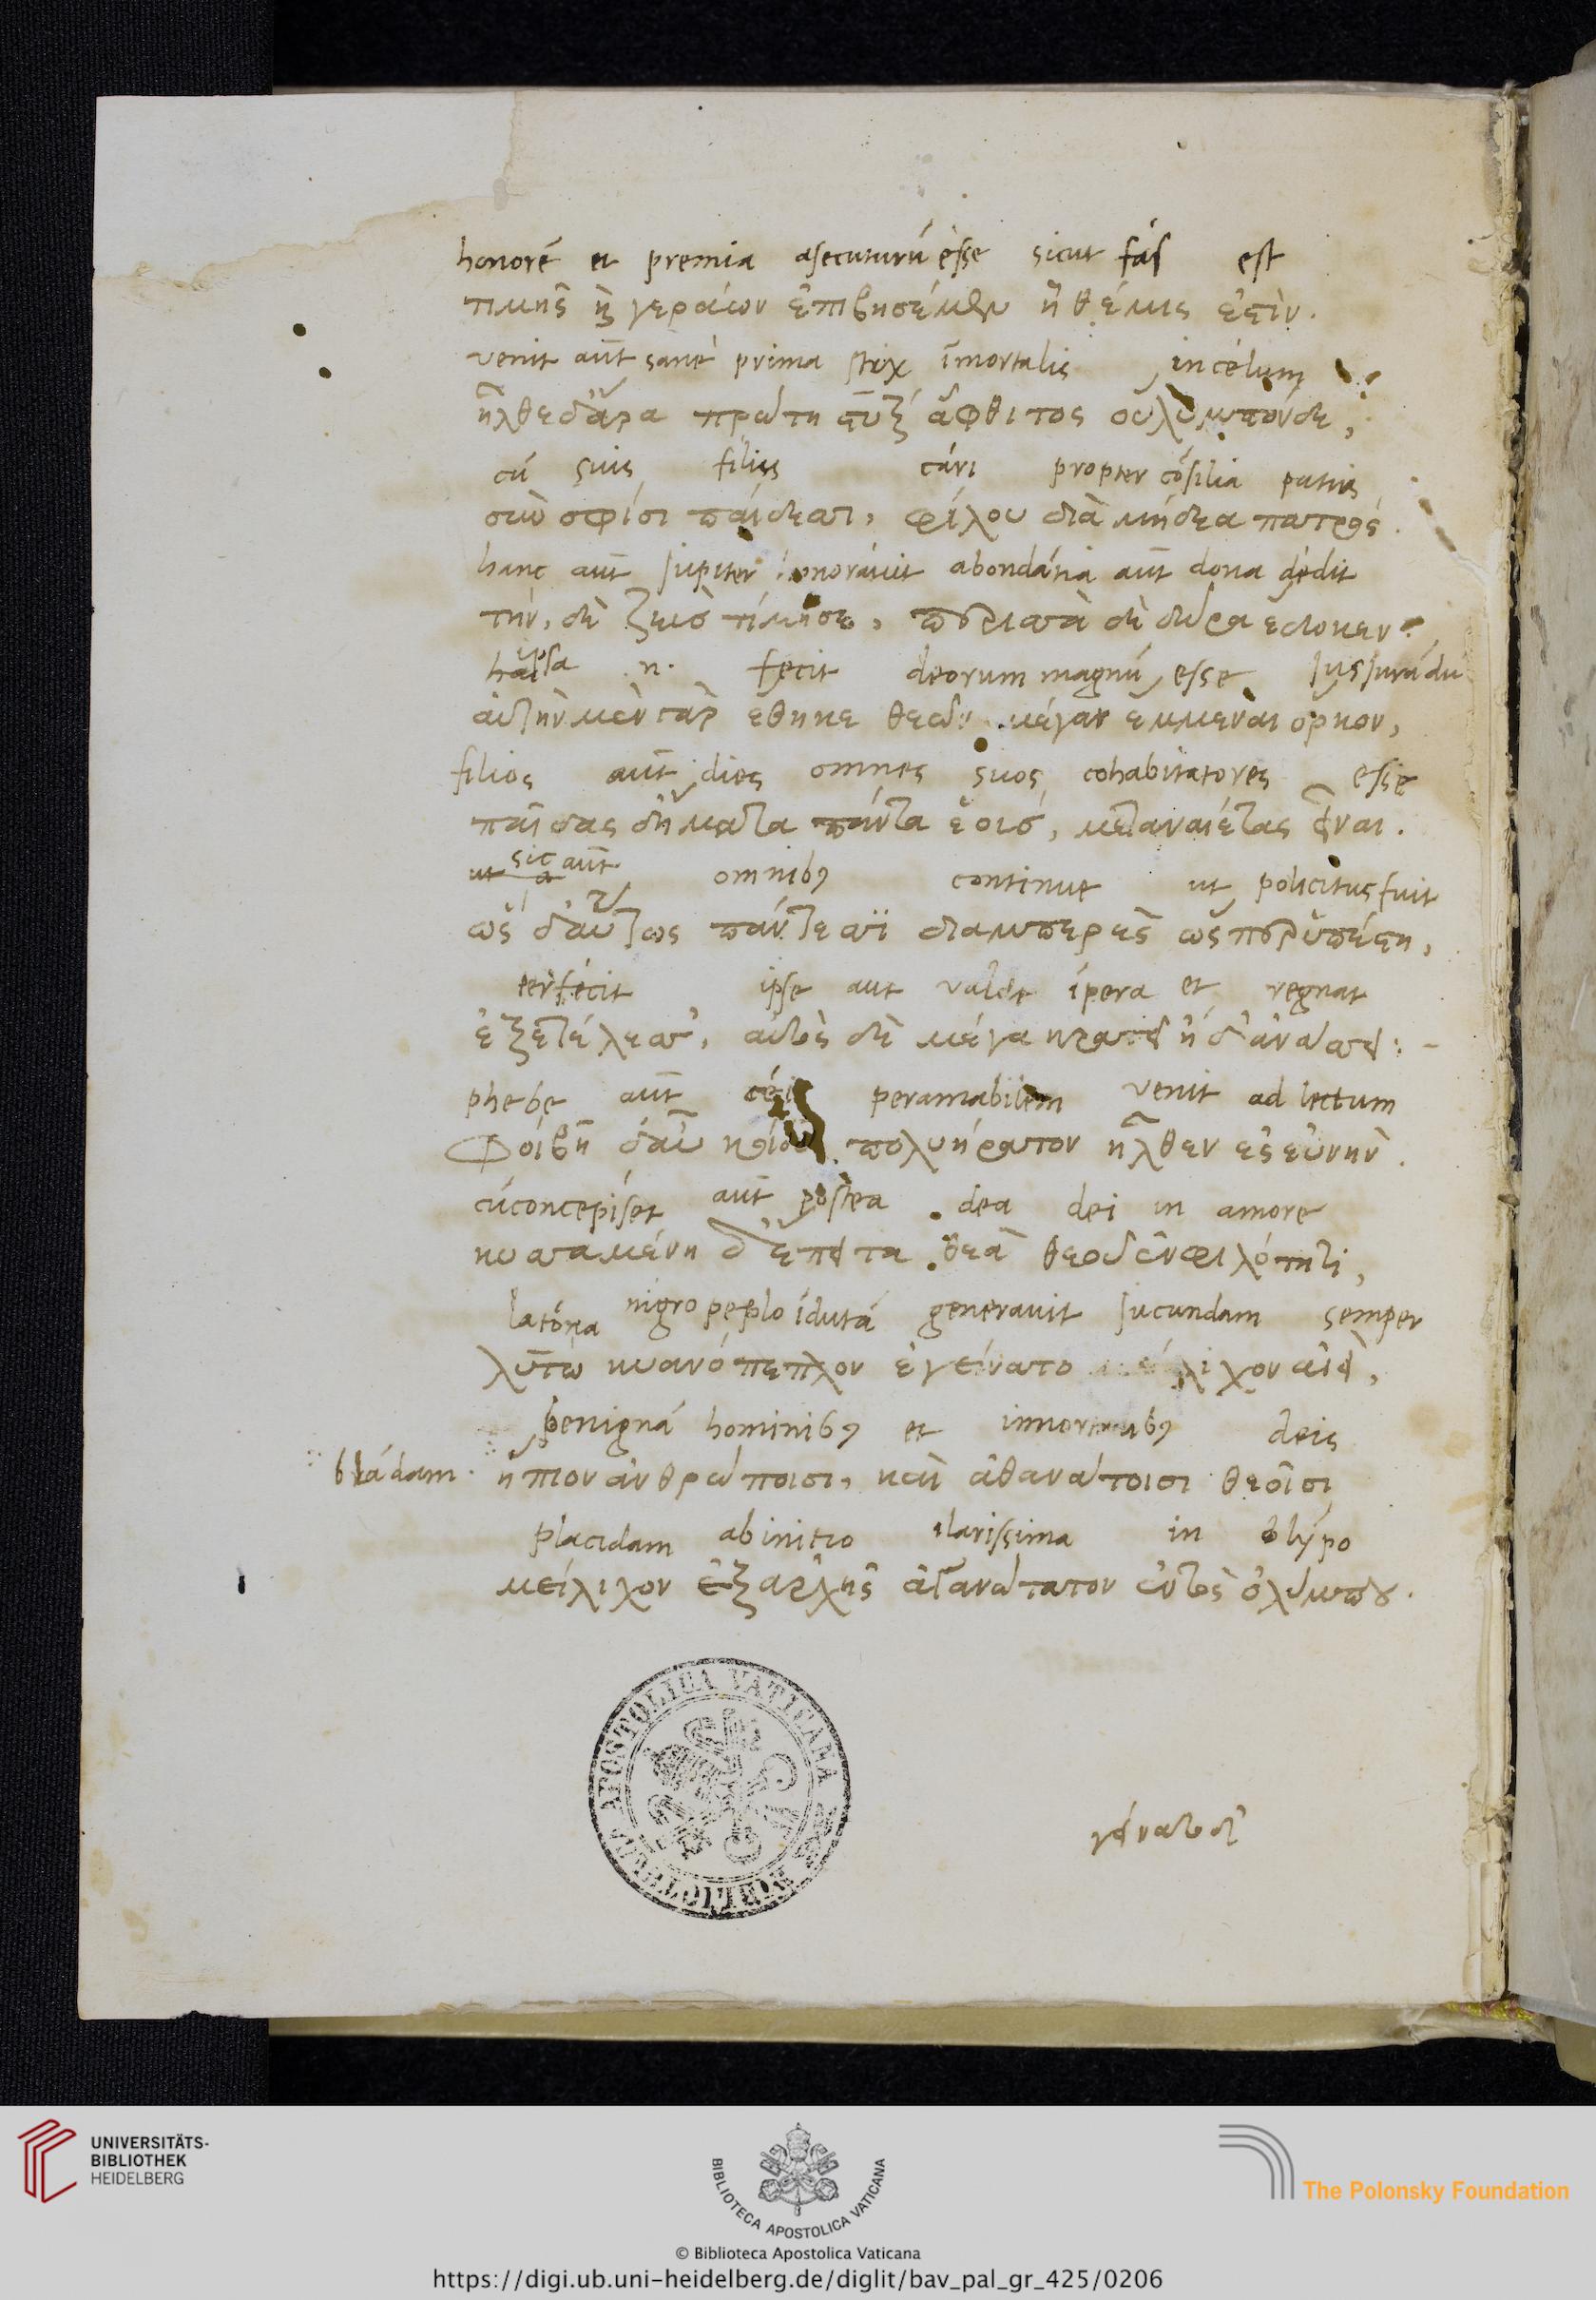 honorē et premia asecuturū esse sicut fas est
τιμῆς καὶ γεράων ἐπιβησέμεν ἣ θέμις ἐστίν.
venit aūt sane prima stix īmortalis in celum
ἦλθε δ' ἄρα πρώτη στὺξ ἄφθιτος οὔλυμπόνδε,
cū suis filiis cari propter cōsilia patris
σὺν σφίσι παίδεσσι, φίλου διὰ μήδεα πατρός.
hanc aūt jupiter honoravit abondātia aūt dona dedit
τὴν, δὲ ζεὺς τίμησε, περισσὰ δὲ δῶρα ἔδωκεν.
ipsa n. fecit deorum magnū esse jusjurādū
αὐτὴν μὲν γὰρ ἔθηκε θεῶν μέγαν ἔμμεναι ὅρκον,
filios aūt dies omnes suos cohabitatores esse
παῖδας δ' ἤματα πάντα ἑοῖς, μεταναιέτας εἶναι.
sic aūt omnibꝫ continue ut policitus fuit
ὣς δ' αὔτως πάντεσσι διαμπερὲς ὥς περ ὑπέστη,
perfecit ipse aut valde īpera et regnat
ἐξετέλεσσ', αὐτὸς δὲ μέγα κρατεῖ ἠδ' ἀνάσσει: -
phebe aūt cei peramabilem venit ad lectum
Φοίβη δ' αὖ κοίου πολυήρατον ἦλθεν ἐς εὐνήν.
cū concepiset aūt postea dea dei in amore
κυσαμένη δ' ἔπειτα θεὰ θεοῦ ἐν φιλότητι,
latona nigro peplo īdutā generavit jucundam semper
λητὼ κυανόπεπλον ἐγείνατο μείλιχον αἰεὶ,
benignā hominibꝫ et immortalibꝫ deis
blādam. ἤπιον ἀνθρώποισι, καὶ ἀθανάτοισι θεοῖσι
placidam ab initio ilarissima in olȳpo
μείλιχον ἐξ ἀρχῆς ἀγανώτατον ἐντὸς ὀλύμπου.
γείνατο δ'
BIBLIOTECA APOSTOLICA VATICANA
UNIVERSITÄTS-
BIBLIOTHEK
HEIDELBERG
BIBLIOTECA APOSTOLICA VATICANA
The Polonsky Foundation
© Biblioteca Apostolica Vaticana
https://digi.ub.uni-heidelberg.de/diglit/bav_pal_gr_425/0206